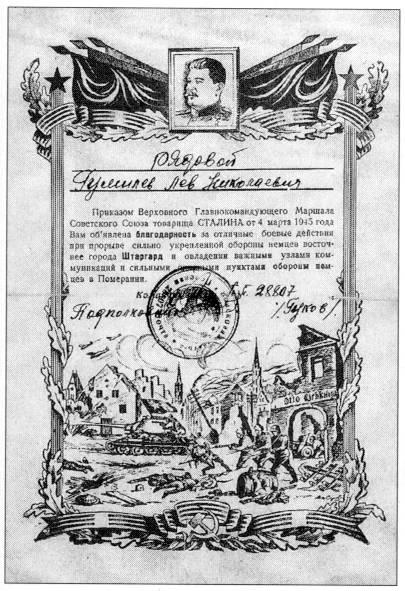 рядовой
Гумилев Лев Николаевич
Приказом Верховного Главнокомандующего Маршала
Советского Союза товарища СТАЛИНА от 4 марта 1945 года
Вам объявлена благодарность за отличные боевые действия
при прорыве сильно укрепленной обороны немцев восточ-
нее города Штаргард и овладении важными узлами ком-
муникаций и сильными опорными пунктами обороны нем-
цев в Померании.
28807
Подполковник /Гуков/
Otto